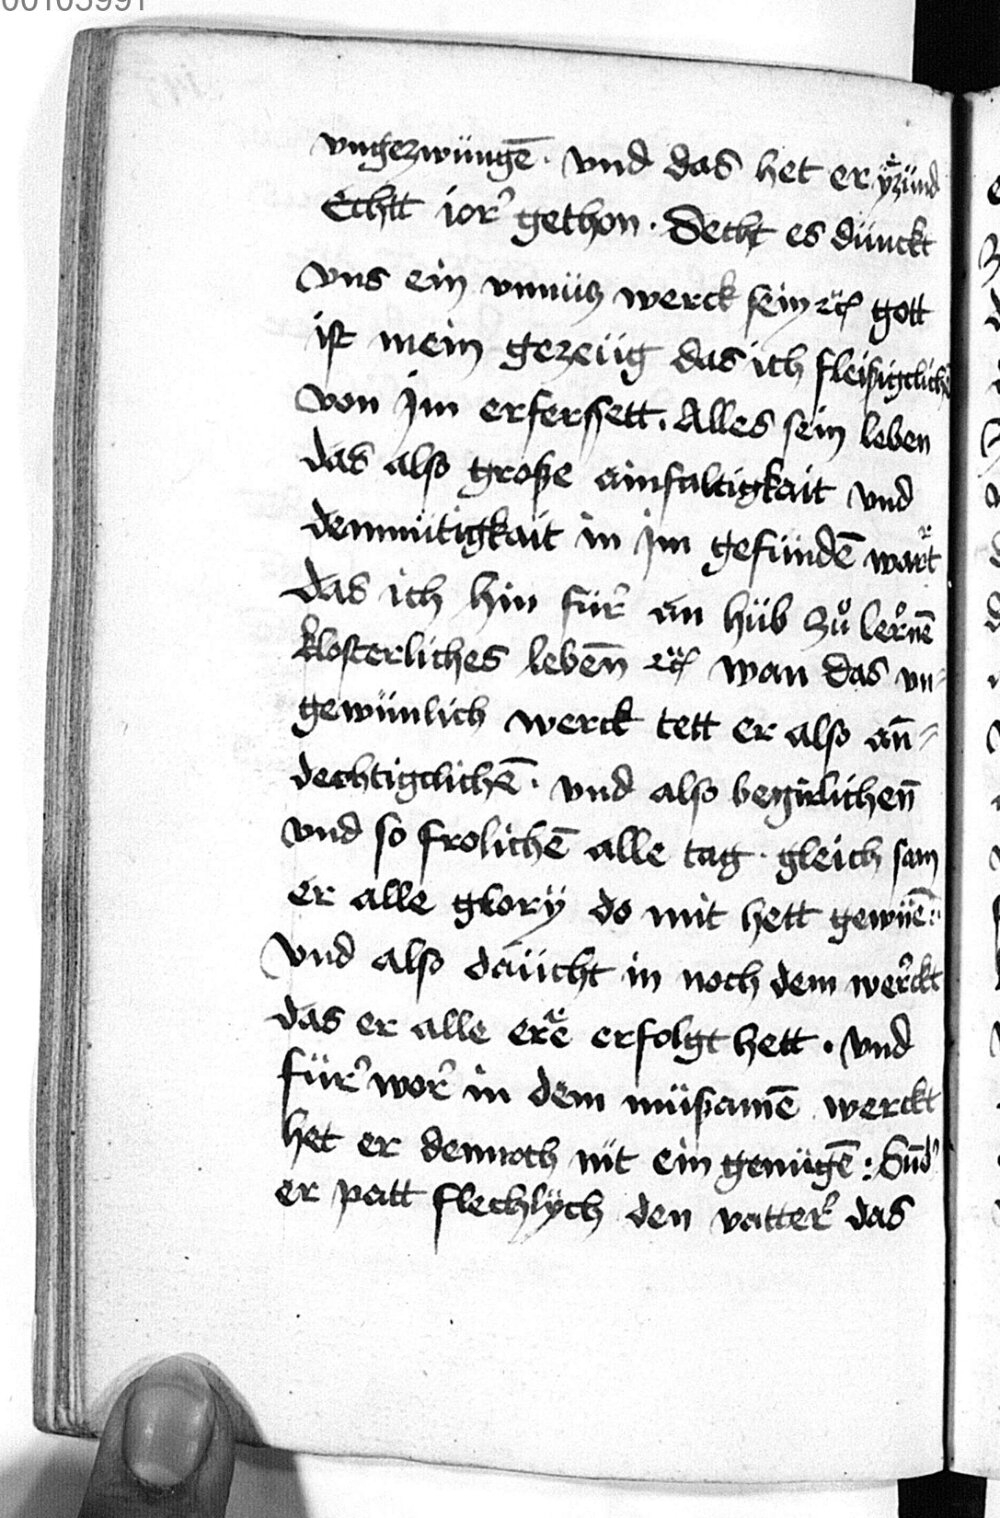 00103991
vngezwüngē · vnd das het er yͤzünd
Echtt ior gethon · Secht es dünckt
vns ein vnnücz werck sein ꝛc̈ gott
ist mein gezeüig das ich fleisigclichē
von jm erferssett. Alles sein leben
das also große ainfaltigkait vnd
demmütigkait in jm gefündē wart
das ich hin für an hüb zuͦ lernē
klosterliches lebēn ꝛc̈ wan das vn-
gewünlich werck tett er also an̄-
dechtigclichē · vnd also begirlichen̄
vnd so frolichē alle tag · gleich sam
er alle glory do mit hett gewüē ·
Vnd also däücht in noch dem werckt
das er alle erē erfolgt hett · vnd
für wor in dem müsamē werckt
het er dennoch nit ein genügē : Sūd'
er patt flechlÿch den vatter das